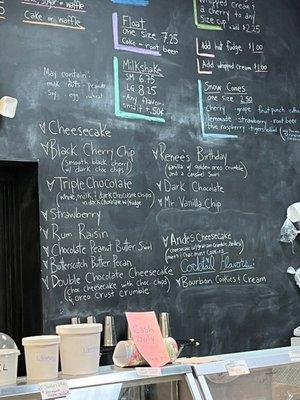 Cake or waffle
Float
one size 7.25
Cake = root beer
Milkshake
SM 6.75
LG 8.15
Any flavors
malt + 50¢
and a cherry to any
Size
Add hot fudge
Add whipped cream $1.00
Snow Cones
one size 2.50
cherry grape fruit punch
lemonade strawberry root beer
blue raspberry
May contain
milk nuts peanuts
Soy egg wheat
Cheesecake
Black Cherry Chip
(smooth black cherry
w/ dark choc chips)
Triple Chocolate
(white, milk & dark chocolate chips
in dark chocolate w/ fudge)
Strawberry
Rum Raisin
Chocolate Peanut Butter Swirl
Butterscotch Butter Pecan
Double Chocolate Cheesecake
(choc cheesecake with choc chips
& oreo crust crumble)
Renee's Birthday
(vanilla w/ golden oreo crumble
and a caramel swirl)
Dark Chocolate
Mr. Vanilla Chip
Andes Cheesecake
Cocktail Flavors:
Bourbon Cookies & Cream
Cash
Only